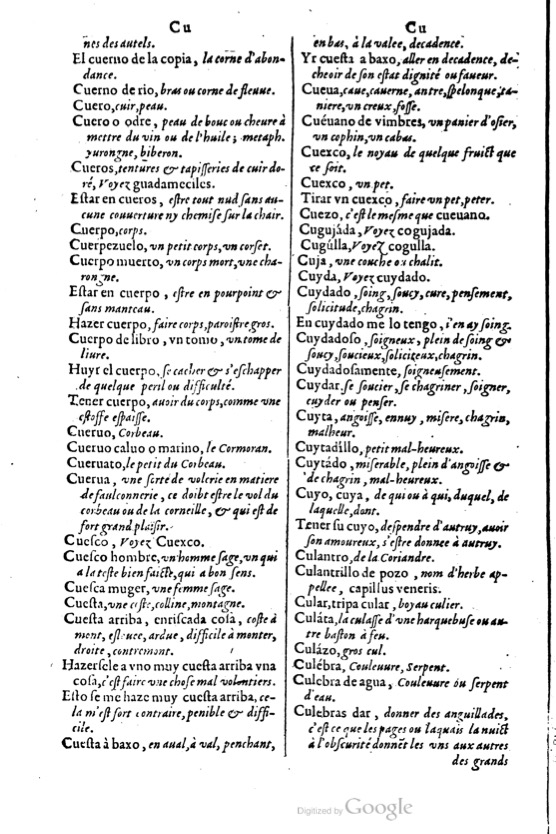 Cu
nes des autels.
El cuerno de la copia, la corne d'abon-
dance.
Cuerno de rio, bras ou corne de fleuue.
Cuero, cuir, peau.
Cuero o odre, peau de bouc ou cheure à
mettre du vin ou de l'huile; metaph.
yurongne, biberon.
Cueros, tentures & tapisseries de cuir do-
ré, Voyez guadameciles.
Estar en cueros, estre tout nud sans au-
cune couuerture ny chemise sur la chair.
Cuerpo, corps.
Cuerpezuelo, vn petit corps, vn corset.
Cuerpo muerto, vn corps mort, vne cha-
rongne.
Estar en cuerpo, estre en pourpoint &
sans manteau.
Hazer cuerpo, faire corps, paroistre gros.
Cuerpo de libro, vn tomo, vn tome de
liure.
Huyr el cuerpo, se cacher & s'eschapper
de quelque peril ou difficulté.
Tener cuerpo, auoir du corps, comme vne
estoffe espaisse.
Cueruo, Corbeau.
Cueruo caluo o marino, le Cormoran.
Cueruato, le petit du Corbeau.
Cuerua, vne sorte de volerie en matiere
de faulconnerie, ce doibt estre le vol du
corbeau ou de la corneille, & qui est de
fort grand plaisir.
Cuesco, Voyez Cuexco.
Cuesco hombre, vn homme sage, vn qui
a la teste bien faicte, qui a bon sens.
Cuesca muger, vne femme sage.
Cuesta, vne coste, colline, montagne.
Cuesta arriba, enriscada cosa, coste à
mont, esleuee, ardue, difficile à monter,
droite, contremont.
Hazersele a vno muy cuesta arriba vna
cosa, c'est faire vne chose mal volontiers.
Esto se me haze muy cuesta arriba, ce-
la m'est fort contraire, penible & diffi-
cile.
Cuesta à baxo, en aual, à val, penchant,
Cu
en bas, à la valee, decadence.
Yr cuesta a baxo, aller en decadence, de-
cheoir de son estat dignité ou faueur.
Cueua, caue, cauerne, antre, spelonque, ta-
niere, vn creux, fosse.
Cuéuano de vimbres, vn panier d'osier,
vn cophin, vn cabas.
Cuexco, le noyau de quelque fruict que
ce soit.
Cuexco, vn pet.
Tirar vn cuexco, faire vn pet, peter.
Cuezo, c'est le mesme que cueuano.
Cugujáda, Voyez cogujada.
Cugúlla, Voyez cogulla.
Cuja, vne couche ou chalit.
Cuyda, Voyez cuydado.
Cuydado, soing, soucy, cure, pensement,
solicitude, chagrin.
En cuydado me lo tengo, i'en ay soing.
Cuydadoso, soigneux, plein de soing &
soucy, soucieux, soliciteux, chagrin.
Cuydadosamente, soigneusement.
Cuydar, se soucier, se chagriner, soigner,
cuyder ou penser.
Cuyta, angoisse, ennuy, misere, chagrin,
malheur.
Cuytadíllo, petit mal-heureux.
Cuytádo, miserable, plein d'angoisse &
de chagrin, mal-heureux.
Cuyo, cuya, de qui ou à qui, duquel, de
laquelle, dont.
Tener su cuyo, despendre d'autruy, auoir
son amoureux, s'estre donnee à autruy.
Culantro, de la Coriandre.
Culantrillo de pozo, nom d'herbe ap-
pellee, capillus veneris.
Cular, tripa cular, boyau culier.
Culáta, la culasse d'vne harquebuse ou au-
tre baston à feu.
Culázo, gros cul.
Culébra, Couleuure, Serpent.
Culebra de agua, Couleuure ou serpent
d'eau.
Culebras dar, donner des anguillades,
c'est ce que les pages ou laquais la nuict
à l'obscurité donnẽt les vns aux autres
des grands
Digitized by Google